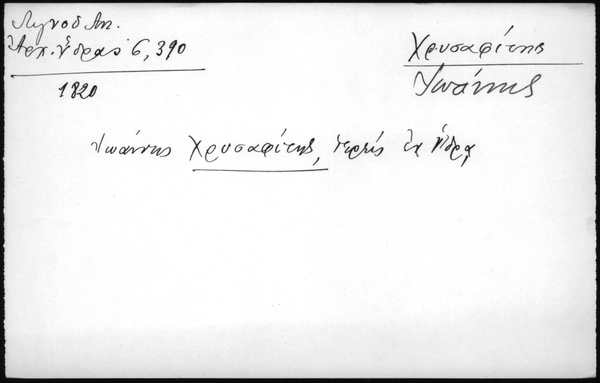 Λιγνοῦ Αντ.
Ἀρχ. Ὕδρας 6, 390
1820
Χρυσαφίτης
Ἰωάννης
Ἰωάννης Χρυσαφίτης, ἱερεὺς ἐν Ὕδρᾳ